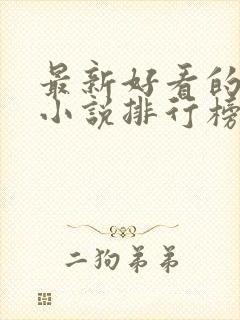 最新好看的
小说排行榜
二狗弟弟